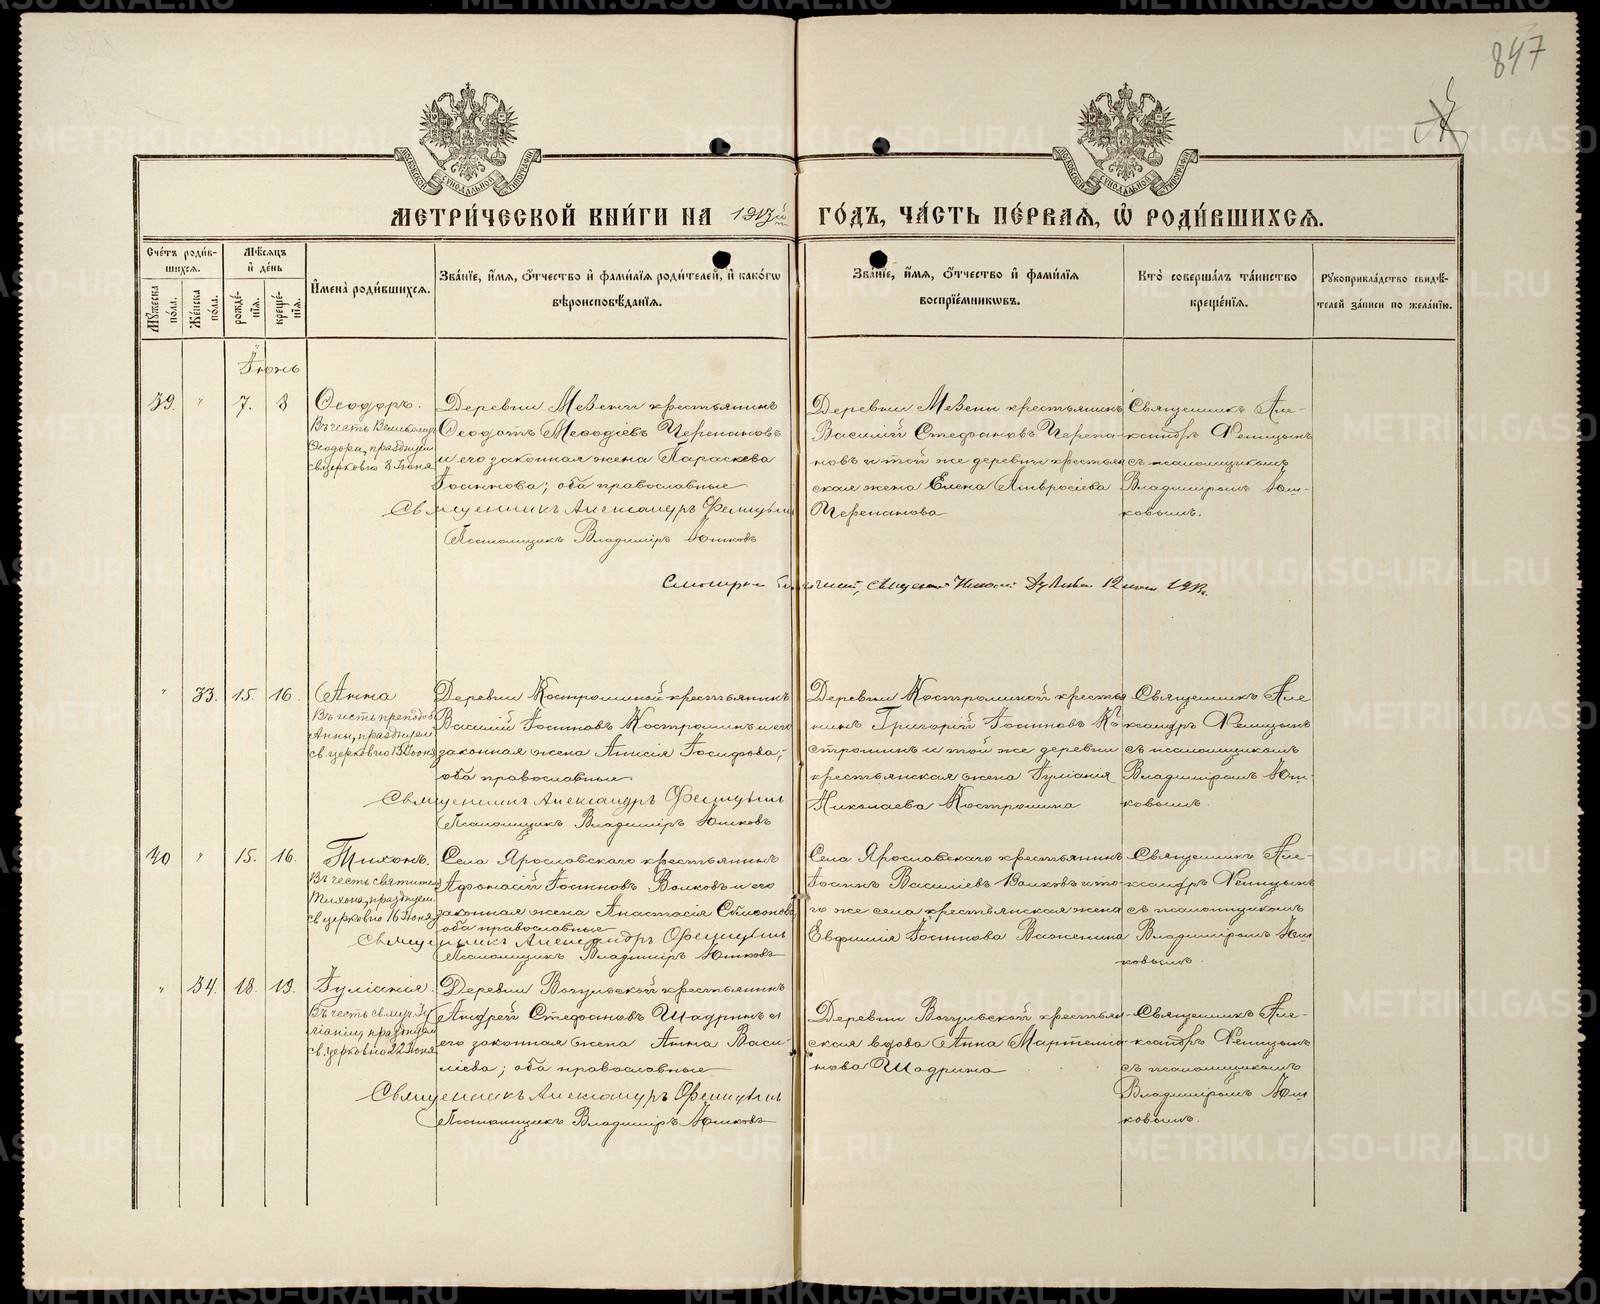 847
МОСКОВСКОЙ СУНОДАЛЬНОЙ ТИПОГРАФІИ
МОСКОВСКОЙ СУНОДАЛЬНОЙ ТИПОГРАФІИ
МЕТРИ́ЧЕСКОЙ КНИ́ГИ НА 1913й ГО́ДЪ, ЧА́СТЬ ПЕ́РВАѦ, Ѡ҆ РОДИ́ВШИХСѦ.
Сче́тъ роди́вшихсѧ.
Мꙋжеска по́ла.
Же́нска по́ла.
Мѣ́сѧцъ и҆ де́нь
рожде́нїѧ.
креще́нїѧ.
И҆мена̀ роди́вшихсѧ.
Зва́нїе, и҆́мѧ, ѻ҆́тчество и҆ фами́лїѧ роди́телей, и҆ како́гѡ
вѣроисповѣ́данїѧ.
Зва́нїе, и҆́мѧ, ѻ҆́тчество и҆ фами́лїѧ
воспрїе́мникѡвъ.
Кто̀ соверша́лъ та́инство
креще́нїѧ.
Рꙋкоприкла́дство свидѣ́-
телей за́писи по жела́нїю.
Іюнь
39. " 7. 8
Ѳеодоръ.
Въ честь Великому.
Ѳеодора, празднуем.
св. церковію 8 Іюня
Деревни Мезени крестьянинъ
Ѳеодотъ Меѳодіевъ Черепановъ
и его законная жена Параскева
Іоаннова; оба православные
Священникъ Александръ Феницынъ
Псаломщикъ Владиміръ Юшковъ
Деревни Мезени крестьянинъ
Василій Стефановъ Черепа-
новъ и той же деревни крестьян
ская жена Елена Амвросіева
Черепанова
Священникъ Але-
ксандръ Феницынъ
съ псаломщикомъ
Владиміромъ Юш-
ковымъ.
12 1913г.
" 33. 15. 16.
Анна
Въ честь преподоб
Анны, празднуем
св. церковію 13 Іюня
Деревни Костроминой крестьянинъ
Василій Іоанновъ Костроминъ и его
законная жена Анисія Іосифова;
оба православные
Священникъ Александръ Феницынъ
Псаломщикъ Владиміръ Юшковъ
Деревни Костроминой крестья
нинъ Григорій Іоанновъ Ко
строминъ и той же деревни
крестьянская жена Іуліанія
Николаева Костромина
Священникъ Але
ксандръ Феницынъ
съ псаломщикомъ
Владиміромъ Юш-
ковымъ.
40 " 15. 16.
Тихонъ.
Въ честь святител
Тихона, празднуем.
св. церковію 16 Іюня
Села Ярославскаго крестьянинъ
Афонасій Іоанновъ Волковъ и его
законная жена Анастасія Симеонова
оба православные
Священникъ Александръ Феницынъ
Псаломщикъ Владиміръ Юшковъ
Села Ярославскаго крестьянинъ
Іоаннъ Василіевъ Волковъ и то-
го же села крестьянская жена
Евфимія Іоаннова Важенина
Священникъ Але-
ксандръ Феницынъ
съ псаломщикомъ
Владиміромъ Юш
ковымъ.
" 34. 18. 19.
Іуліанія.
Въ честь св. муч. Іу
ліаніи, празднуем
св. церковію 22 Іюня
Деревни Вогульской крестьянинъ
Андрей Стефановъ Шадринъ и
его законная жена Анна Васи-
ліева; оба православные
Священникъ Александръ Феницынъ
Псаломщикъ Владиміръ Юшковъ
Деревни Вогульской крестьян-
ская вдова Анна Мартемія
нова Шадрина
Священникъ Але-
ксандръ Феницынъ
съ псаломщикомъ
Владиміромъ Юш
ковымъ.
METRIKI.GASO-URAL.RU